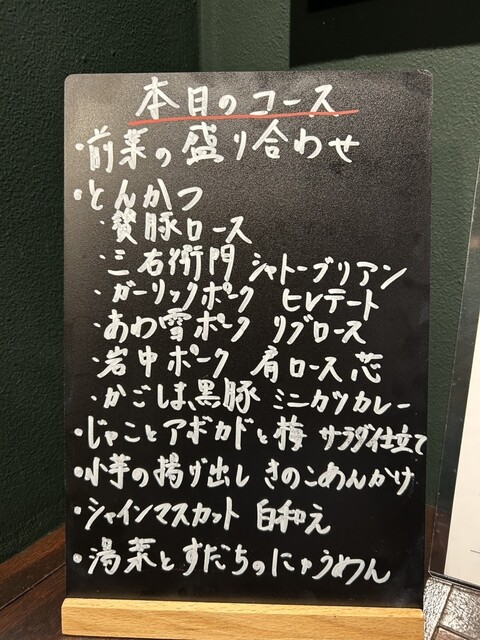 本日のコース
・前菜の盛り合わせ
・とんかつ
・賛豚ロース
・三右衛門 シャトーブリアン
・ガーリックポーク ヒレテート
・あわ雪ポーク リブロース
・岩中ポーク 肩ロース芯
・かごしま黒豚 ミニカツカレー
・じゃことアボカドと梅 サラダ仕立て
・小芋の揚げ出し きのこあんかけ
・シャインマスカット 白和え
・湯葉とすだちのにゅうめん